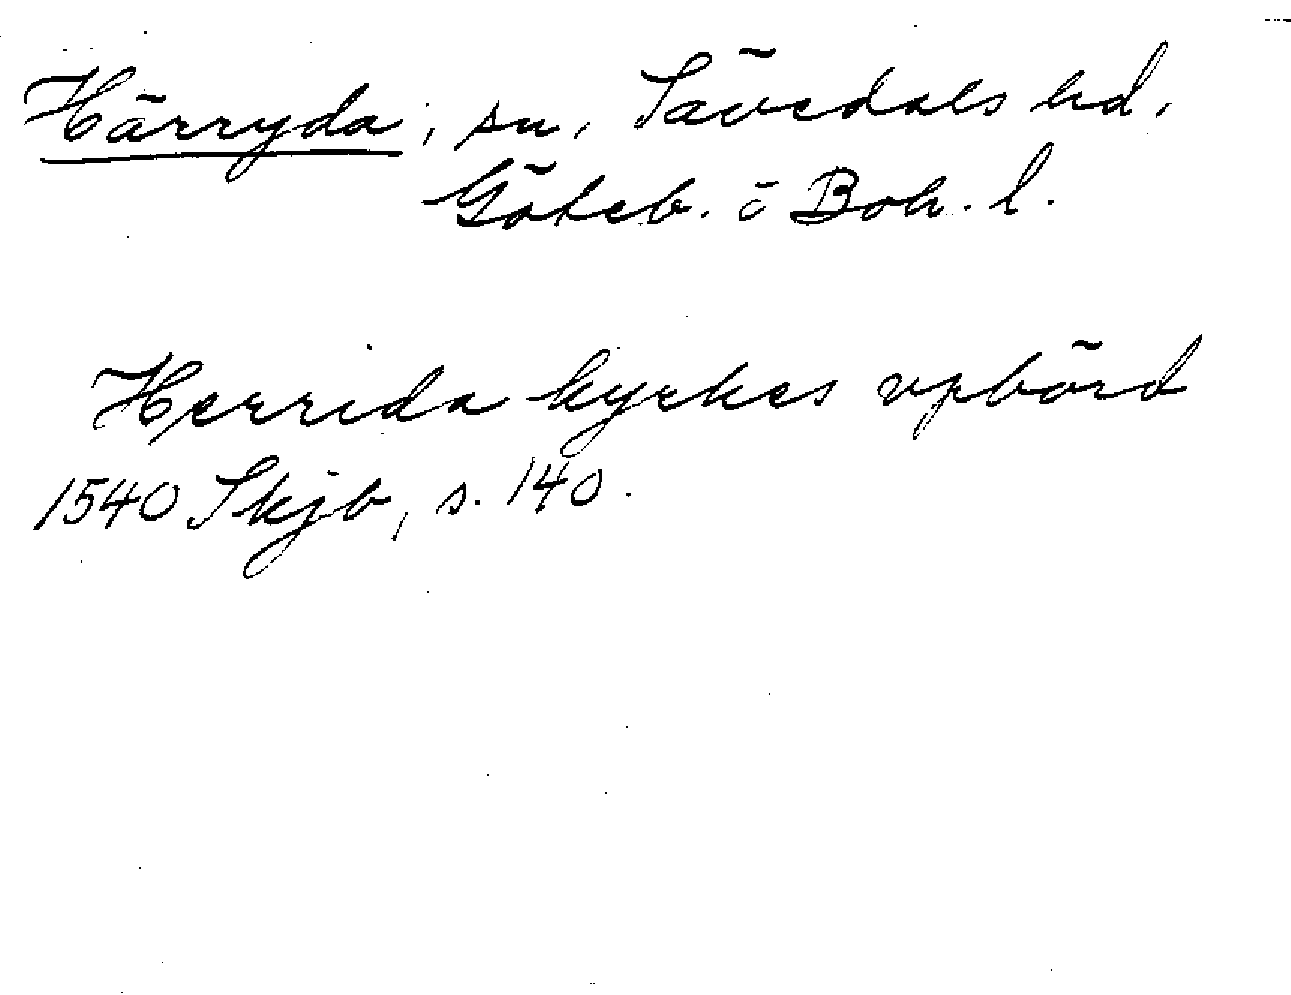 Härryda, sn, Sävedals hd,
Göteb. o Boh. l.
Herrida kyrkes vpbörd
1540 Skjb, s. 140.